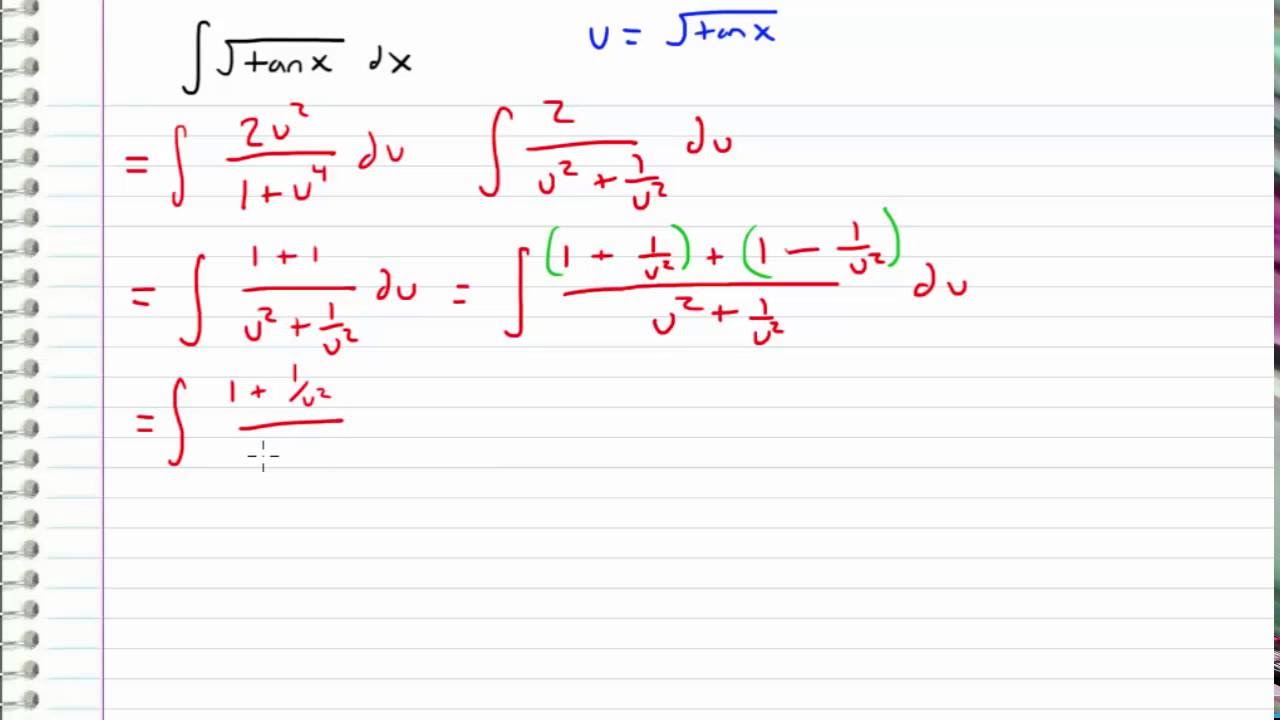 ∫ √(tan x) dx    u = √(tan x)
= ∫ 2u² / (1 + u⁴) du    ∫ 2 / (u² + 1/u²) du
= ∫ (1 + 1) / (u² + 1/u²) du = ∫ ((1 + 1/u²) + (1 − 1/u²)) / (u² + 1/u²) du
= ∫ (1 + 1/u²) /